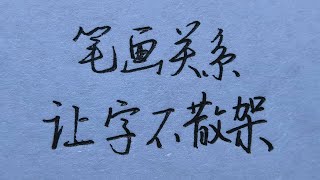 笔画关系
让字不散架